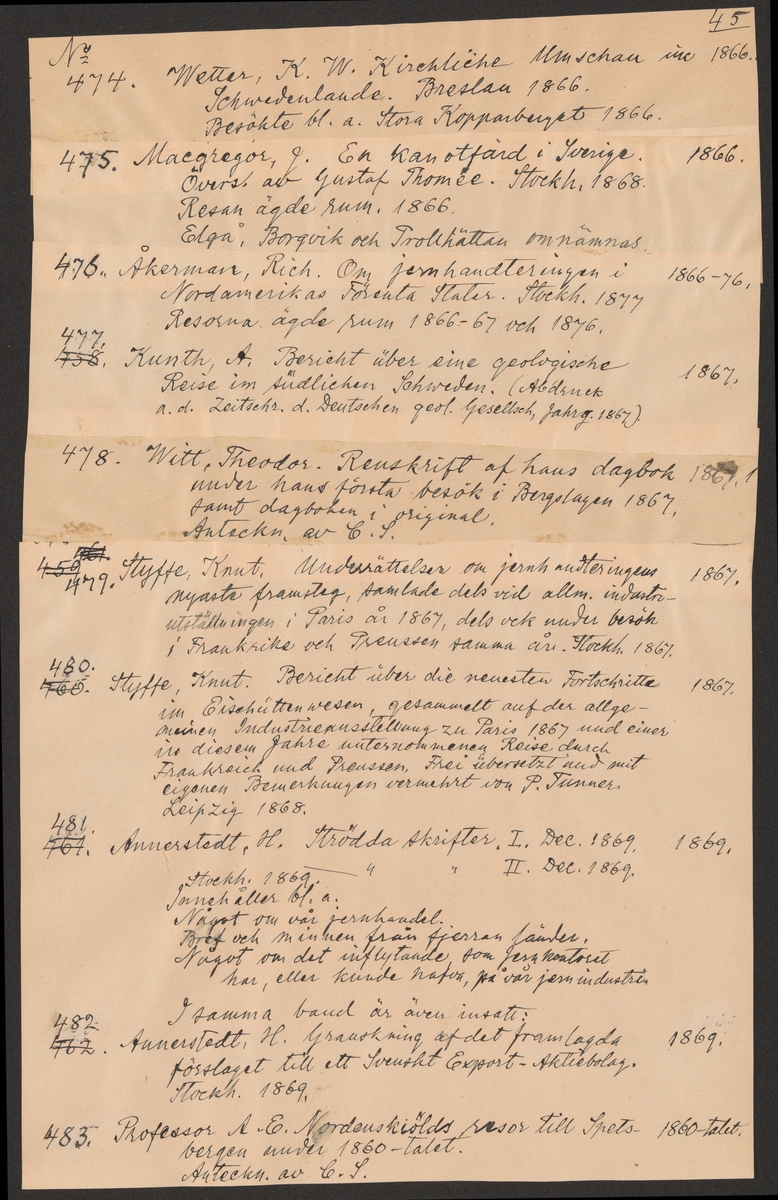 45
No
474. Wetter, K. W. Kirchliche Umschau im 1866.
Schwedenlande. Breslau 1866.
Besökte bl. a. Stora Kopparberget 1866.
475. Macgregor, J. En kanotfärd i Sverige. 1866.
Övers. av Gustaf Thomée. Stockh. 1868.
Resan ägde rum. 1866.
Elgå, Borgvik och Trollhättan omnämnas.
476. Åkerman, Rich. Om jernhandteringen i 1866-76.
Nordamerikas Förenta Stater. Stockh. 1877
Resorna ägde rum 1866-67 och 1876.
477.
458. Kunth, A. Bericht über eine geologische 1867.
Reise im südlichen Schweden. (Abdruck
a. d. Zeitschr. d. Deutschen geol. Gesellsch, Jahrg. 1867).
478. Witt, Theodor. Renskrift af hans dagbok 1867.
under hans första besök i Bergslagen 1867,
samt dagboken i original.
Anteckn. av C. S.
459
479. Styffe, Knut. Underrättelser om jernhandteringens 1867.
nyaste framsteg, samlade dels vid allm. industri-
utställningen i Paris år 1867, dels ock under besök
i Frankrike och Preussen samma år. Stockh. 1867.
480.
460. Styffe, Knut. Bericht über die neuesten Fortschritte 1867.
im Eisehüttenwesen, gesammelt auf der allge-
meinen Industrieausstellung zu Paris 1867 und einer
in diesem Jahre unternommenen Reise durch
Frankreich und Preussen. Frei übersetzt und mit
eigenen Bemerkungen vermehrt von P. Tunner.
Leipzig 1868.
481.
461. Annerstedt, H. Strödda skrifter. I. Dec. 1869. 1869.
— " " II. Dec. 1869.
Stockh. 1869.
Innehåller bl. a.
Något om vår jernhandel.
Bref och minnen från fjerran länder.
Något om det inflytande, som Jernkontoret
har, eller kunde hafva, på vår jernindustri
I samma band är även insatt:
482
462. Annerstedt, H. Granskning af det framlagda 1869.
förslaget till ett Svenskt Export-Aktiebolag.
Stockh. 1869.
483. Professor A. E. Nordenskiölds resor till Spets- 1860-talet.
bergen under 1860-talet.
Anteckn. av C. S.